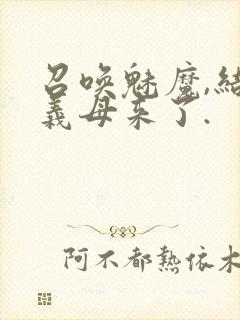 召喚魅魔,結
義母來了.
阿不都熱依木